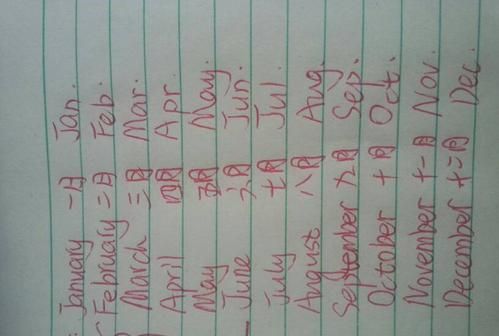 January 一月 Jan.
February 二月 Feb.
March 三月 Mar.
April 四月 Apr.
May 五月 May.
June 六月 Jun.
July 七月 Jul.
August 八月 Aug.
September 九月 Sep.
October 十月 Oct.
November 十一月 Nov.
December 十二月 Dec.